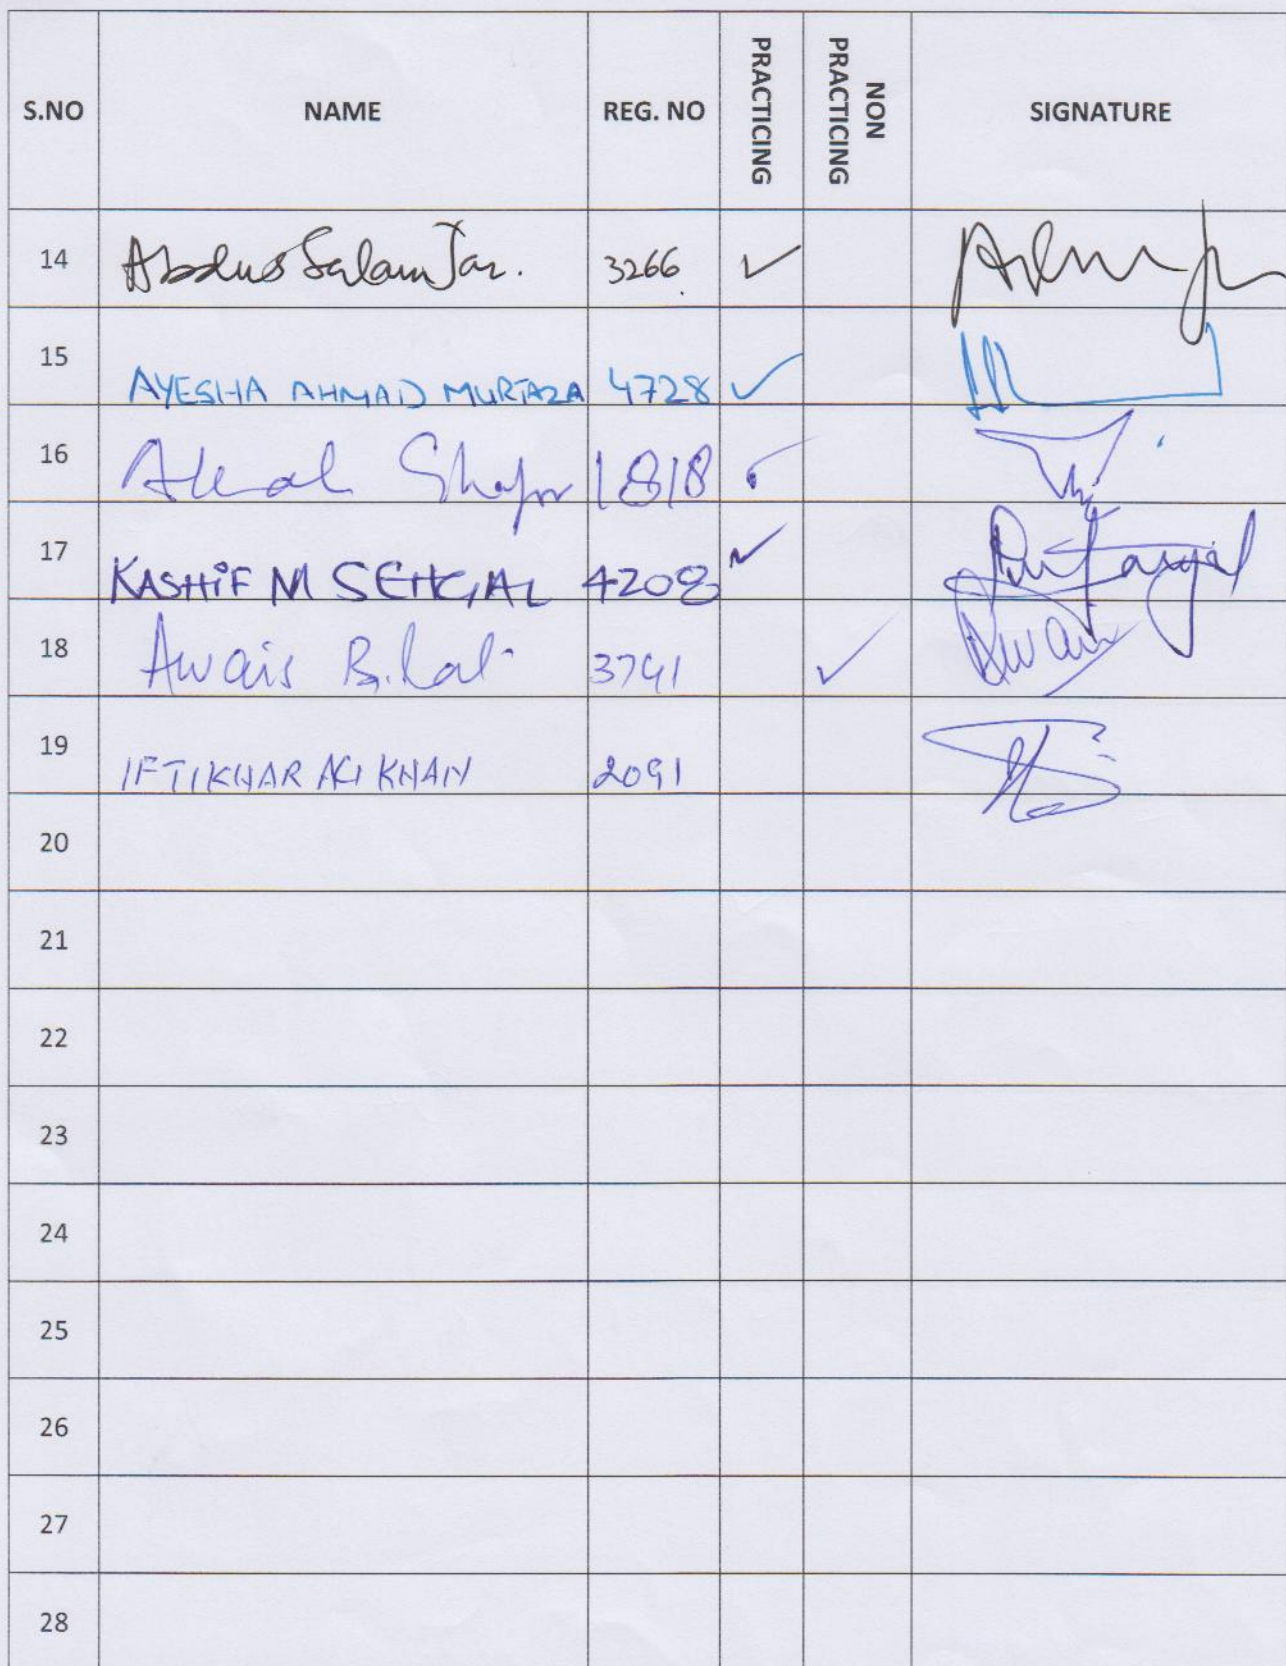 S.NO NAME REG. NO PRACTICING NON PRACTICING SIGNATURE
14 Abdus Salam 3266 ✓
15 AYESHA AHMAD MURTAZA 4728 ✓
16 1818 ✓
17 KASHIF M SEHGAL 4208 ✓
18 Awais Bilal 3791 ✓ Awais
19 IFTIKHAR ALI KHAN 2091
20
21
22
23
24
25
26
27
28